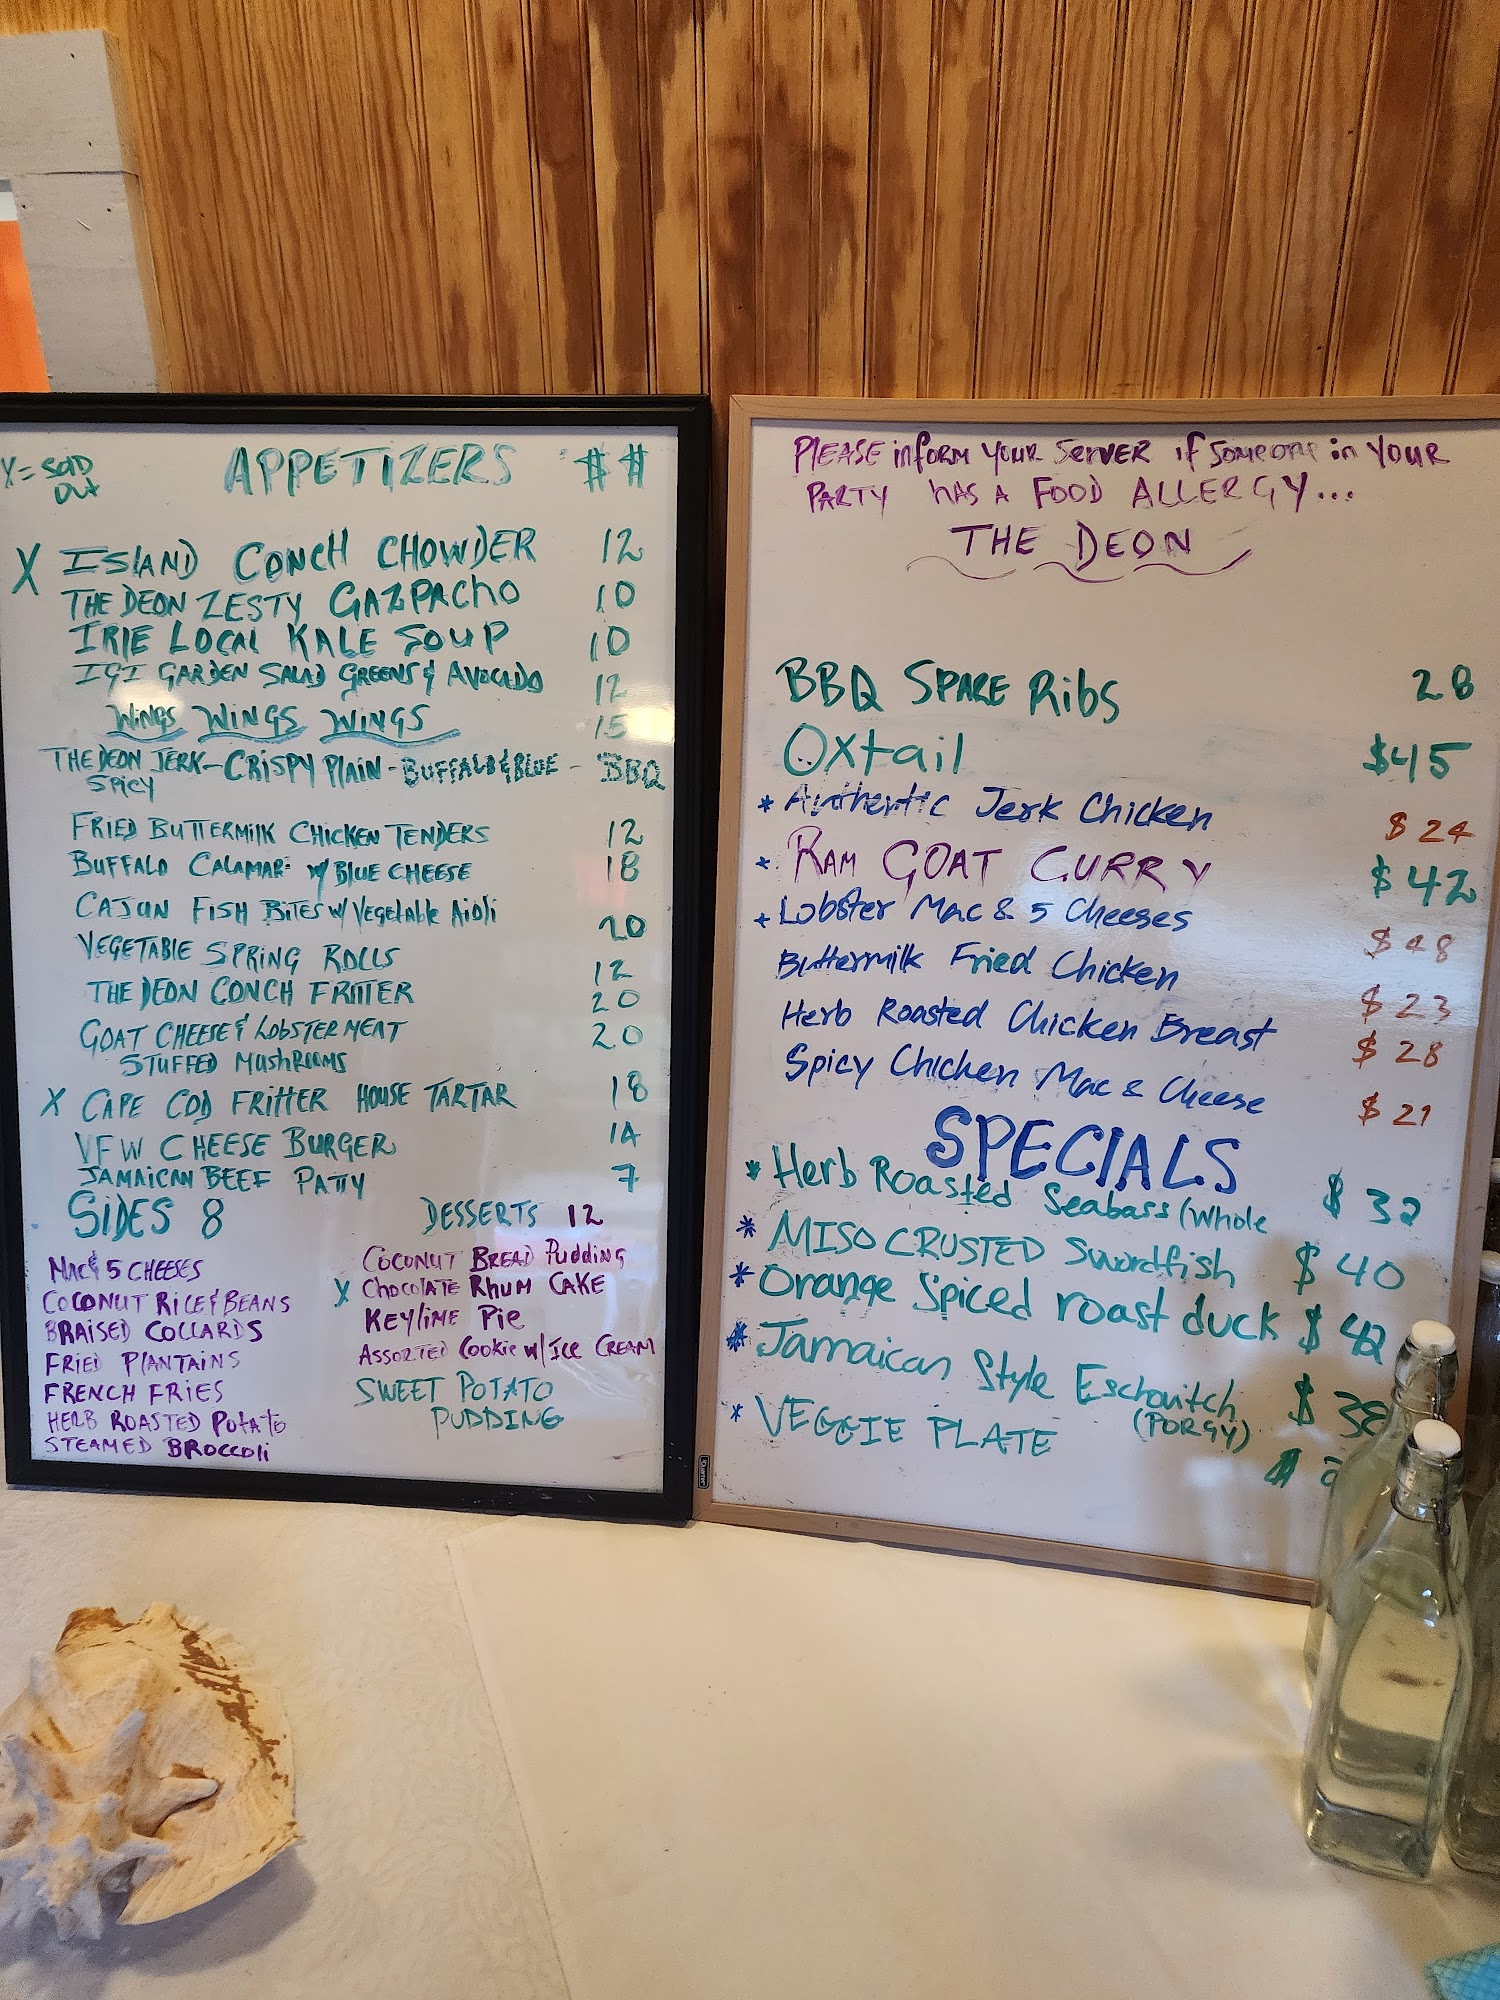 X = SOLD
OUT
APPETIZERS $ #
X ISLAND CONCH CHOWDER 12
THE DEON ZESTY GAZPACHO 10
IRIE LOCAL KALE SOUP 10
IGI GARDEN SALAD GREENS & AVOCADO 12
WINGS WINGS WINGS 15
THE DEON JERK - CRISPY PLAIN - BUFFALO & BLUE - BBQ
SPICY
FRIED BUTTERMILK CHICKEN TENDERS 12
BUFFALO CALAMARI W/ BLUE CHEESE 18
CAJUN FISH BITES W/ VEGETABLE AIOLI 20
VEGETABLE SPRING ROLLS 12
THE DEON CONCH FRITTER 20
GOAT CHEESE & LOBSTER MEAT 20
STUFFED MUSHROOMS
X CAPE COD FRITTER HOUSE TARTAR 18
VFW CHEESE BURGER 14
JAMAICAN BEEF PATTY 7
SIDES 8
MAC & 5 CHEESES
COCONUT RICE & BEANS
BRAISED COLLARDS
FRIED PLANTAINS
FRENCH FRIES
HERB ROASTED POTATO
STEAMED BROCCOLI
DESSERTS 12
COCONUT BREAD PUDDING
X CHOCOLATE RHUM CAKE
KEYLIME PIE
ASSORTED COOKIE W/ ICE CREAM
SWEET POTATO
PUDDING
Quartet
PLEASE INFORM YOUR SERVER IF SOMEONE IN YOUR
PARTY HAS A FOOD ALLERGY...
THE DEON
BBQ SPARE RIBS 28
Oxtail $45
* Authentic Jerk Chicken $24
* RAM GOAT CURRY $42
* Lobster Mac & 5 Cheeses $48
Buttermilk Fried Chicken $23
Herb Roasted Chicken Breast $28
Spicy Chicken Mac & Cheese $21
SPECIALS
* Herb Roasted Seabass (whole $32
* MISO CRUSTED Swordfish $40
* Orange Spiced roast duck $42
* Jamaican Style Eschovitch $38
(PORGY)
* VEGGIE PLATE $